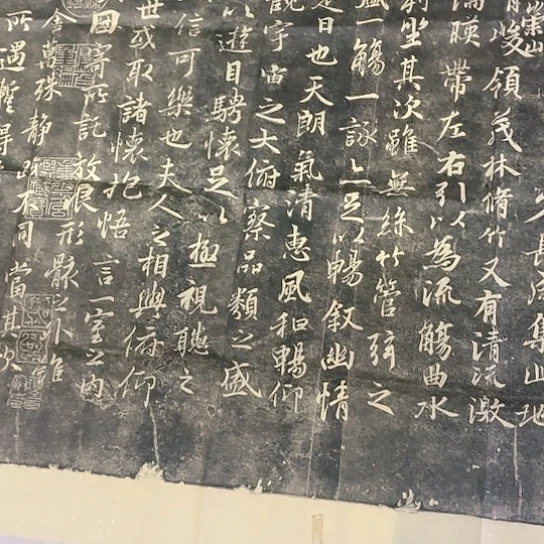 少長咸集此地
有峻領茂林脩竹又有清流激
湍暎帶左右引以為流觴曲水
列坐其次雖無絲竹管弦之
盛一觴一詠亦足以暢敘幽情
是日也天朗氣清惠風和暢仰
觀宇宙之大俯察品類之盛
以遊目騁懷足以極視聽之
信可樂也夫人之相與俯仰
世或取諸懷抱悟言一室之內
因寄所託放浪形骸之外雖
舍萬殊静躁不同當其欣
所遇暫得